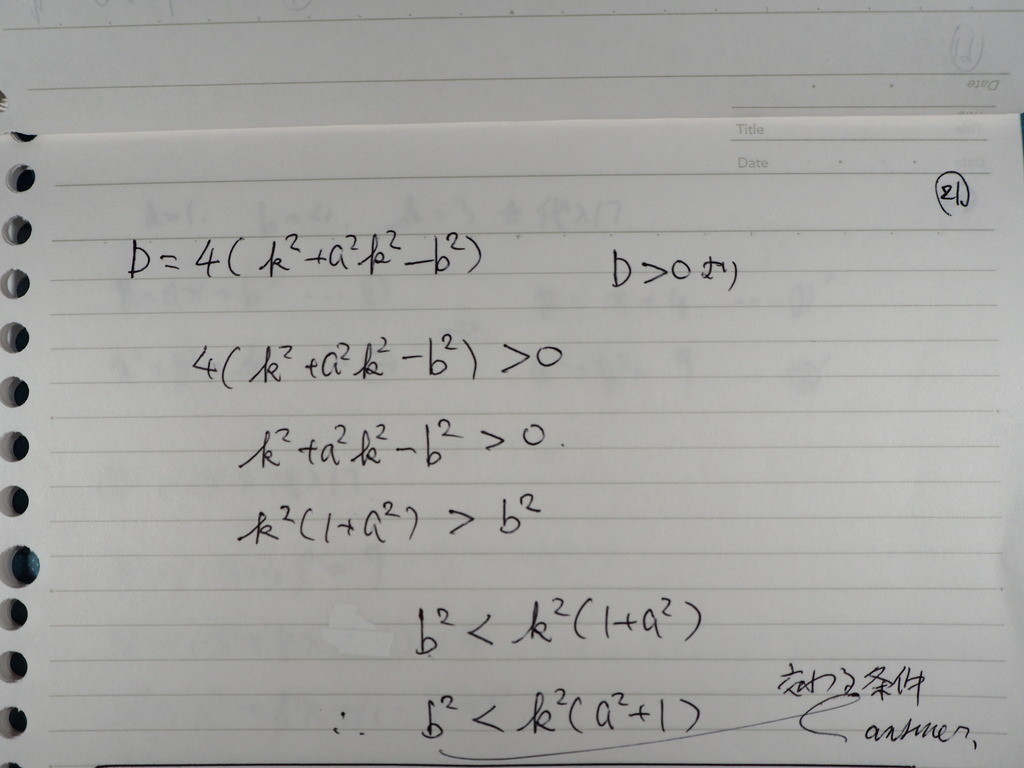 Title
Date
21
D = 4(k²+a²k²-b²) D>0より
4(k²+a²k²-b²) >0
k²+a²k²-b² > 0.
k²(1+a²) > b²
b² < k²(1+a²)
交わる条件
∴ b² < k²(a²+1)
answer,